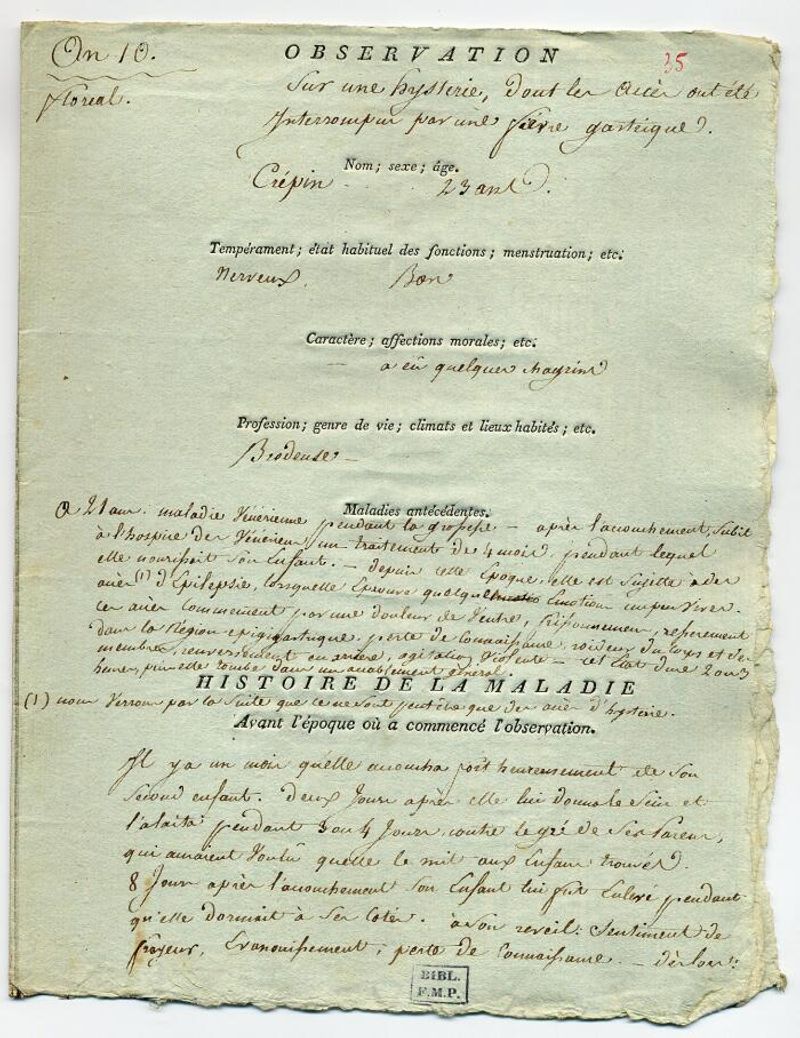 An 10.
floreal.
OBSERVATION
35
Sur une hysterie, dont les accès ont été
Interrompus par une fièvre gastrique.
Nom; sexe; âge.
Crépin 23 ans.
Tempérament; état habituel des fonctions; menstruation; etc.
Nerveux. Bon
Caractère; affections morales; etc.
— a eû quelques chagrins
Profession; genre de vie; climats et lieux habités; etc.
Brodeuse —
Maladies antécédentes.
a 21 ans. maladie Vénérienne pendant la grossesse — après l'accouchement, subit
à l'hospice des Vénériens un traitement de 4 mois, pendant lequel
elle nourissoit son Enfant. — depuis cette Epoque, elle est Sujette à des
accès (1) d'Epilepsie, lorsquelle Eprouve quelque Emotion un peu vive.
ces accès commencent par une douleur de Ventre, frissonnement, resserement
dans la Région epigastrique, perte de connaissance, roideur du corps et des
membres, renversement en arrière, agitation Violente — cet Etat dure 2 ou 3
heures, puis elle tombe dans un accablement général.
HISTOIRE DE LA MALADIE
(1) nous Verrons par la suite que ce ne sont peut être que des accès d'hysterie.
Avant l'époque où a commencé l'observation.
Il y a un mois qu'elle accoucha fort heureusement de son
second enfant. deux Jours après elle lui donna le Sein et
l'alaita pendant 3 ou 4 Jours, contre le gré de Ses Parens,
qui auraient Voulû quelle le mit aux Enfans trouvés.
8 Jours après l'accouchement Son Enfant lui fut Enlevé pendant
qu'elle dormait à Ses cotés. à Son reveil: Sentiment de
frayeur, Evanouissement, perte de connaissance — dèslors:
BIBL.
F.M.P.